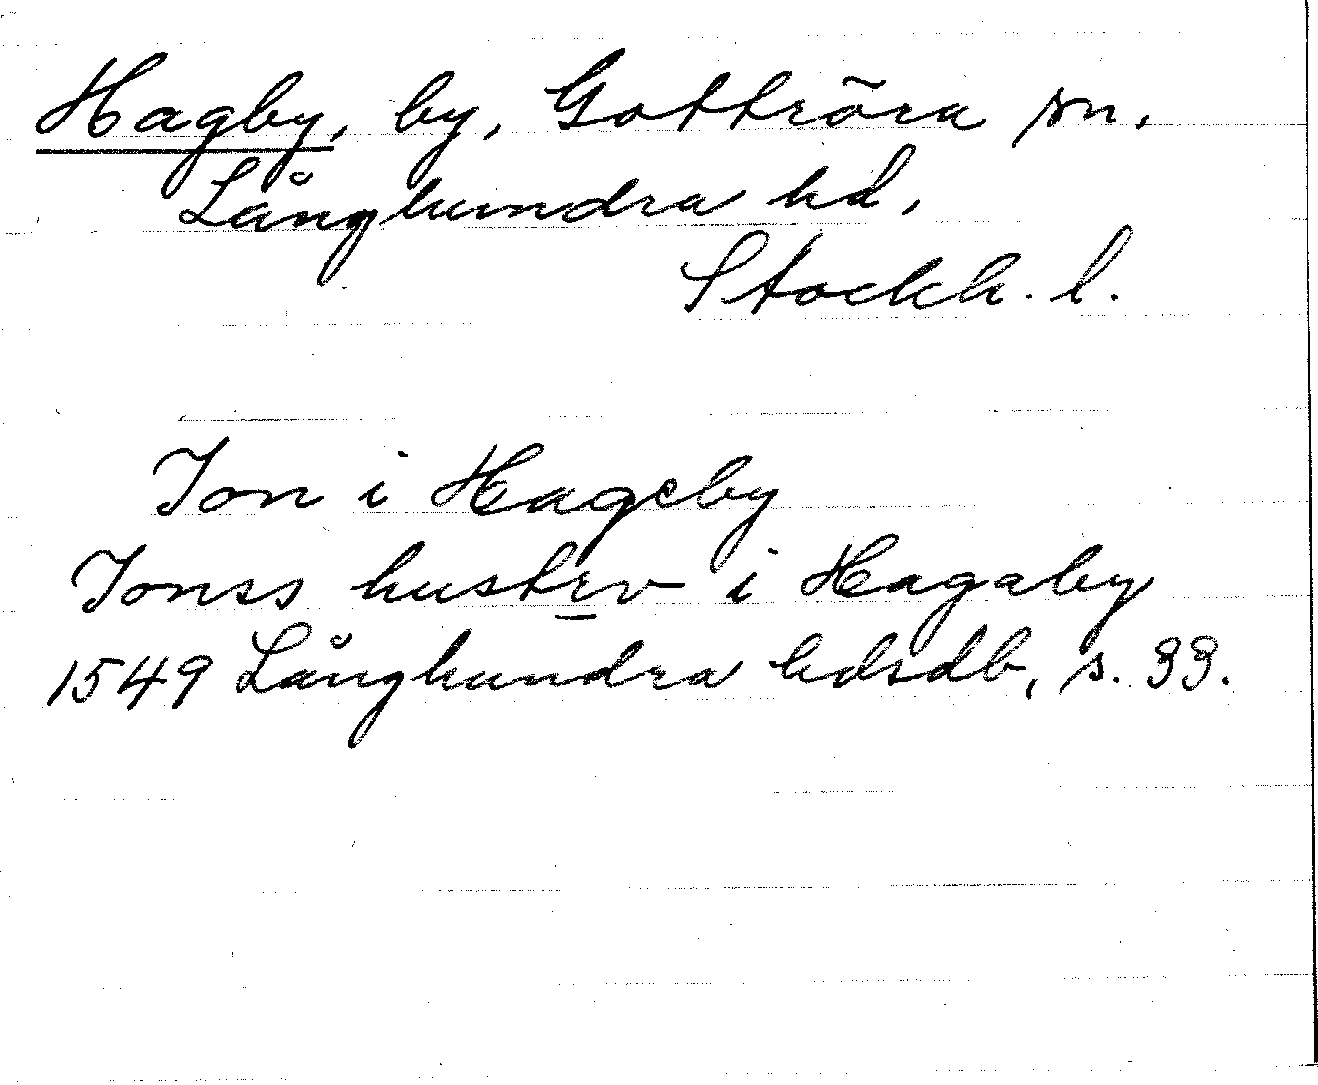 Hagby, by, Gottröra sn.
Långhundra hd.
Stockh. l.
Jon i Hageby
Jonss hustrv i Hagaby
1549 Långhundra hdsdb, s. 33.